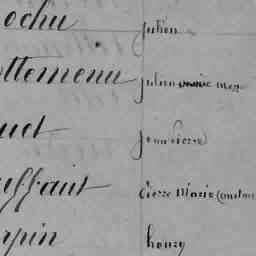 ochu Julien
ttemenu Julien marie
uet Jean Pierre
uffaut Pierre Marie Constant
rpin henry